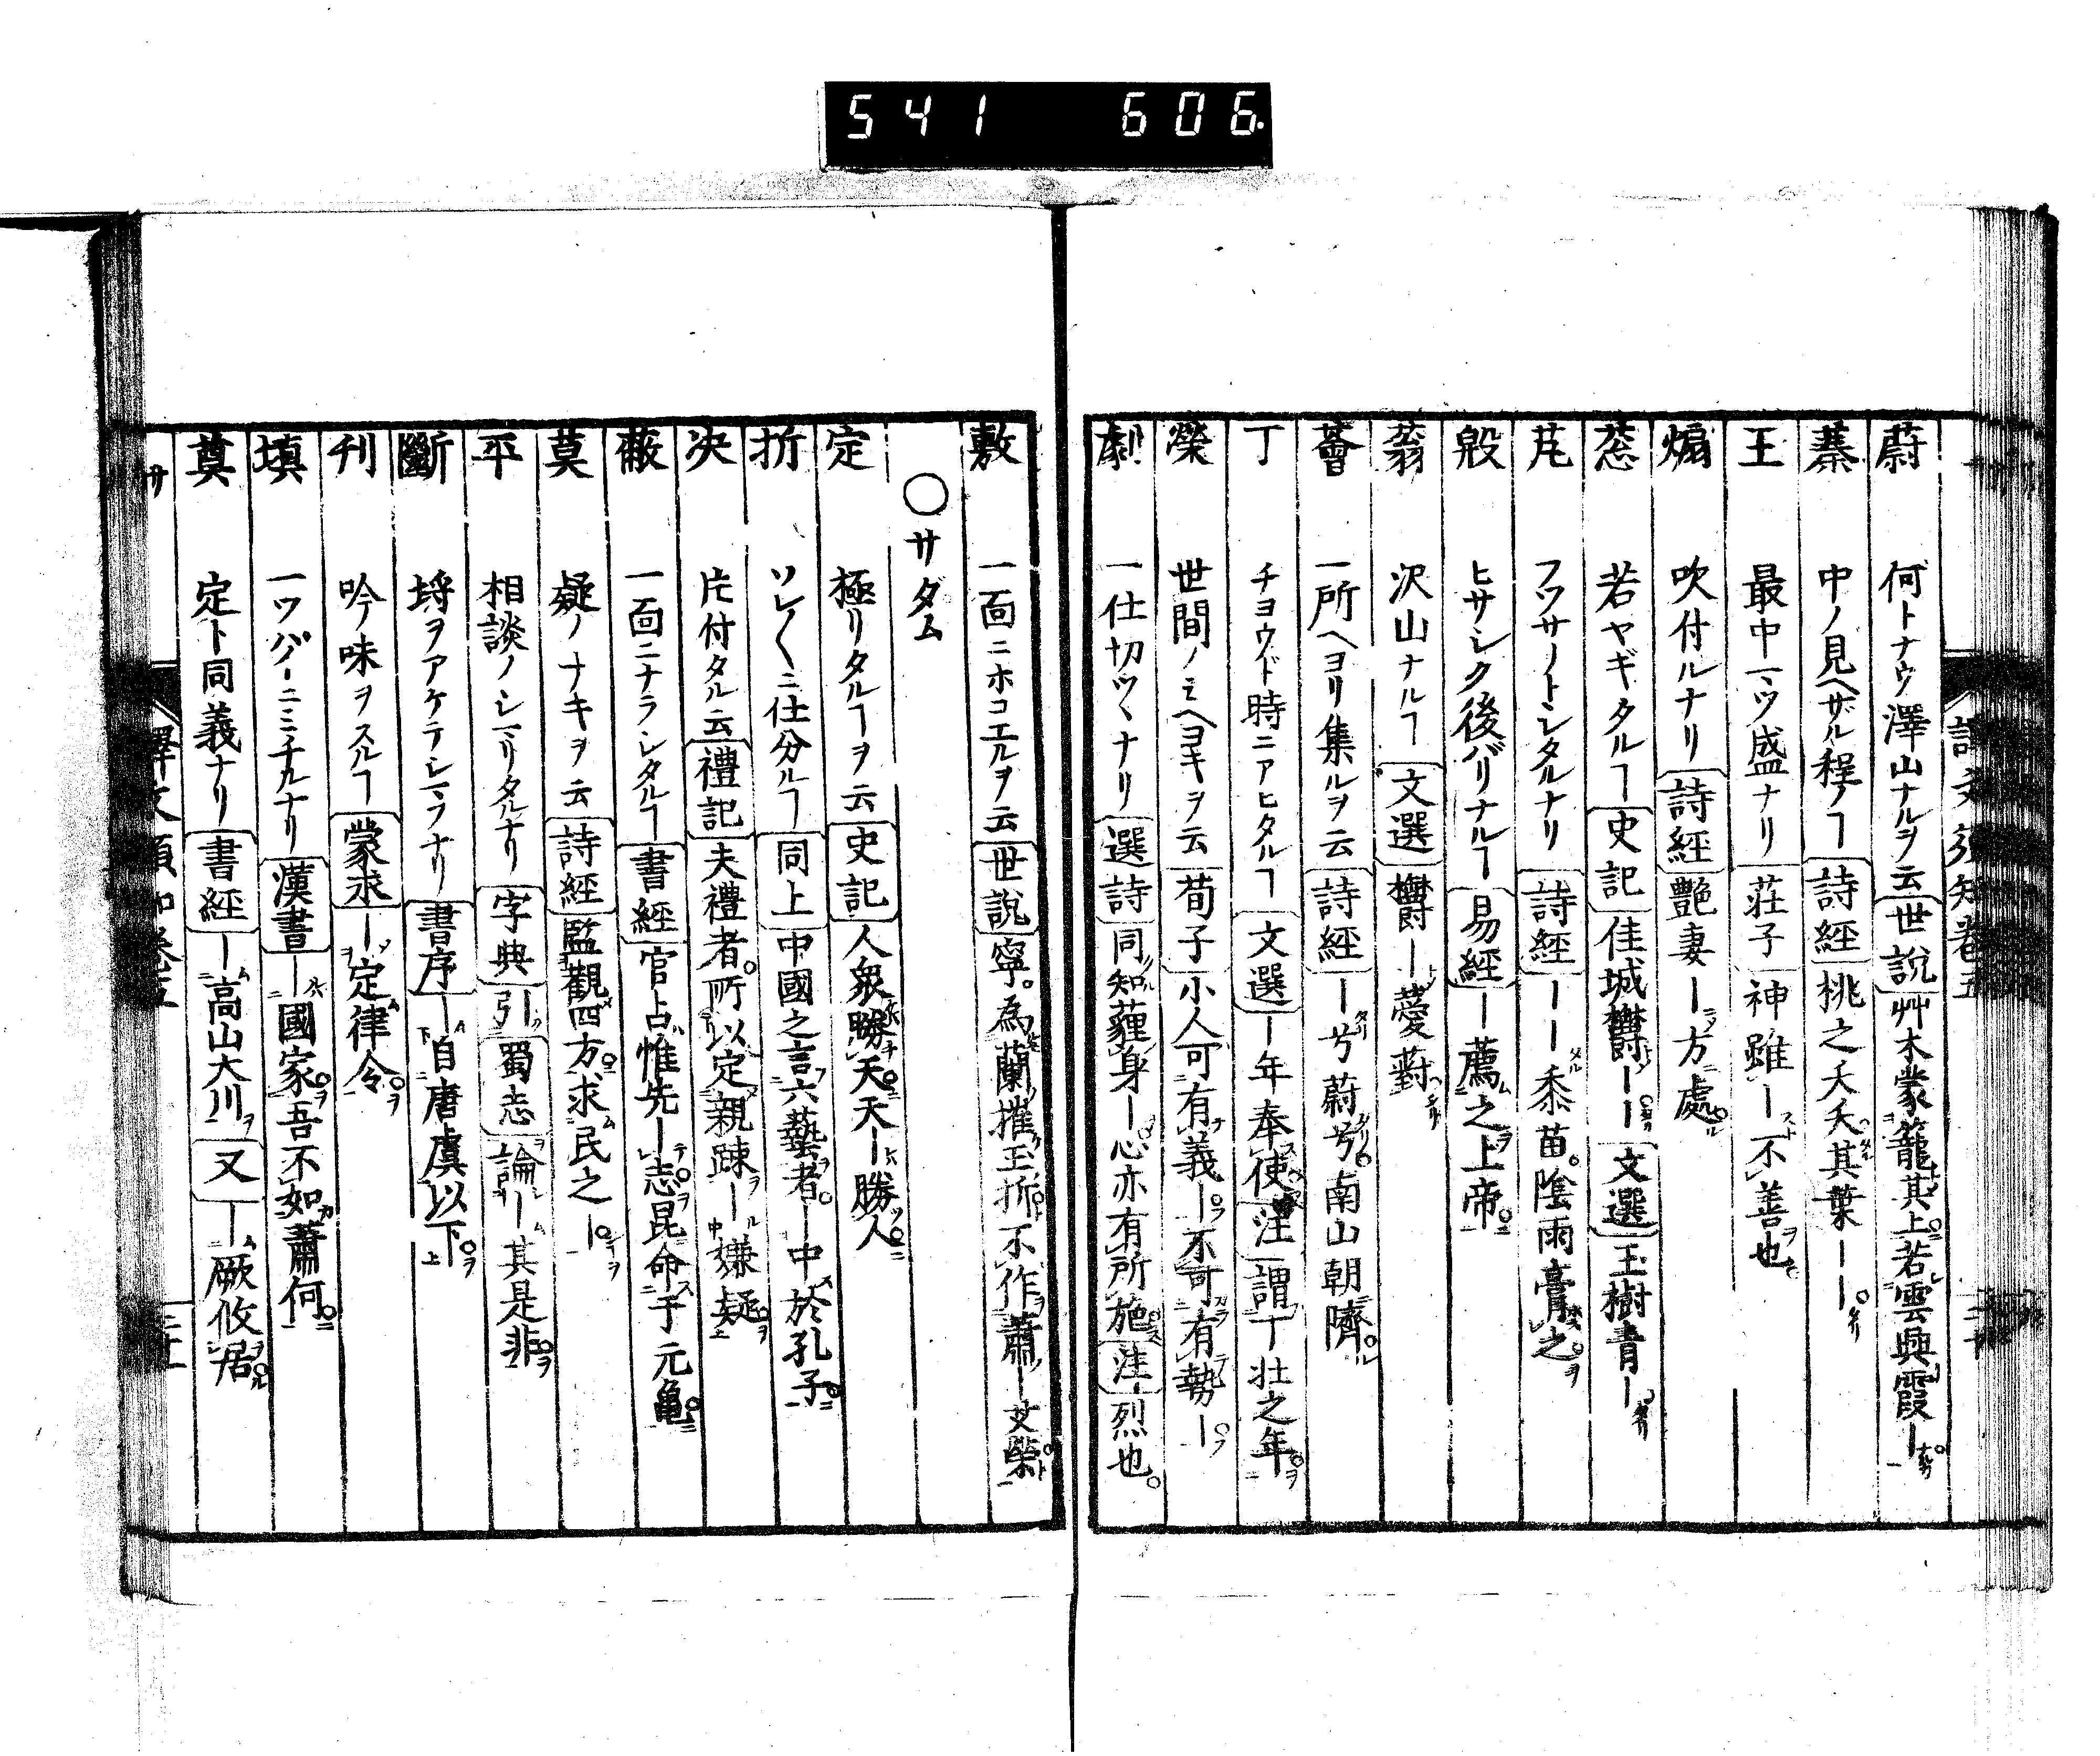 541 606
蔚 何トナウ澤山ナルヲ云 世說 艸木蒙籠其上若雲興霞ー
蓁 中ノ見ヘザル程ノヿ 詩經 桃之夭夭其葉ーー
王 最中一ツ盛ナリ 莊子 神雖ー不善也
煽 吹付ルナリ 詩經 艷妻ー方處
若ヤギタルヿ 史記 佳城欝ーー 文選 玉樹青ー
芃 フツサノトシタルナリ 詩經 ーー黍苗陰雨膏之
殷 ヒサシク後バリナルヿ 易經 ー薦之上帝
蓊 沢山ナルヿ 文選 欝ー薆薱
薈 一所ヘヨリ集ルヲ云 詩經 ー兮蔚兮南山朝隮
丁 チヨウド時ニアヒタルヿ 文選 ー年奉使 注 謂丁壯之年
榮 世間ノミヘヨキヲ云 荀子 小人可有義ー不可有勢ー
劇 一仕切ツヽナリ 選詩 同知薶身ー心亦有所施 注 烈也
敷 一面ニホコエルヲ云 世說 寧為蘭摧玉折不作蕭ー艾榮
○サダム
定 極リタルヿヲ云 史記 人衆勝天天ー勝人
折 ソレ〱ニ仕分ルヿ 同上 中國之言六藝者ー中於孔子
決 片付タル云 禮記 夫禮者所以定親疎ー嫌疑
蔽 一面ニナラシタルヿ 書經 官占惟先ー志昆命于元龜
莫 疑ノナキヲ云 詩經 監觀四方求民之ー
平 相談ノシマリタルナリ 字典 引 蜀志 論ー其是非
斷 埒ヲアケテシマフナリ 書序 ー自唐虞以下
刊 吟味ヲスルヿ 蒙求 ー定律令
填 一ツパーニミチルナリ 漢書 ー國家吾不如蕭何
奠 定ト同義ナリ 書經 ー高山大川 又 ー厥攸居